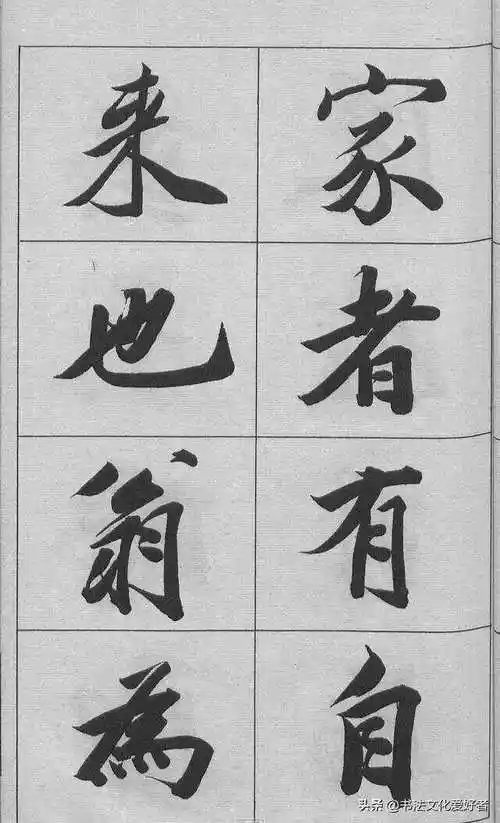 家者有自
来也翁為
头条 @书法文化爱好者